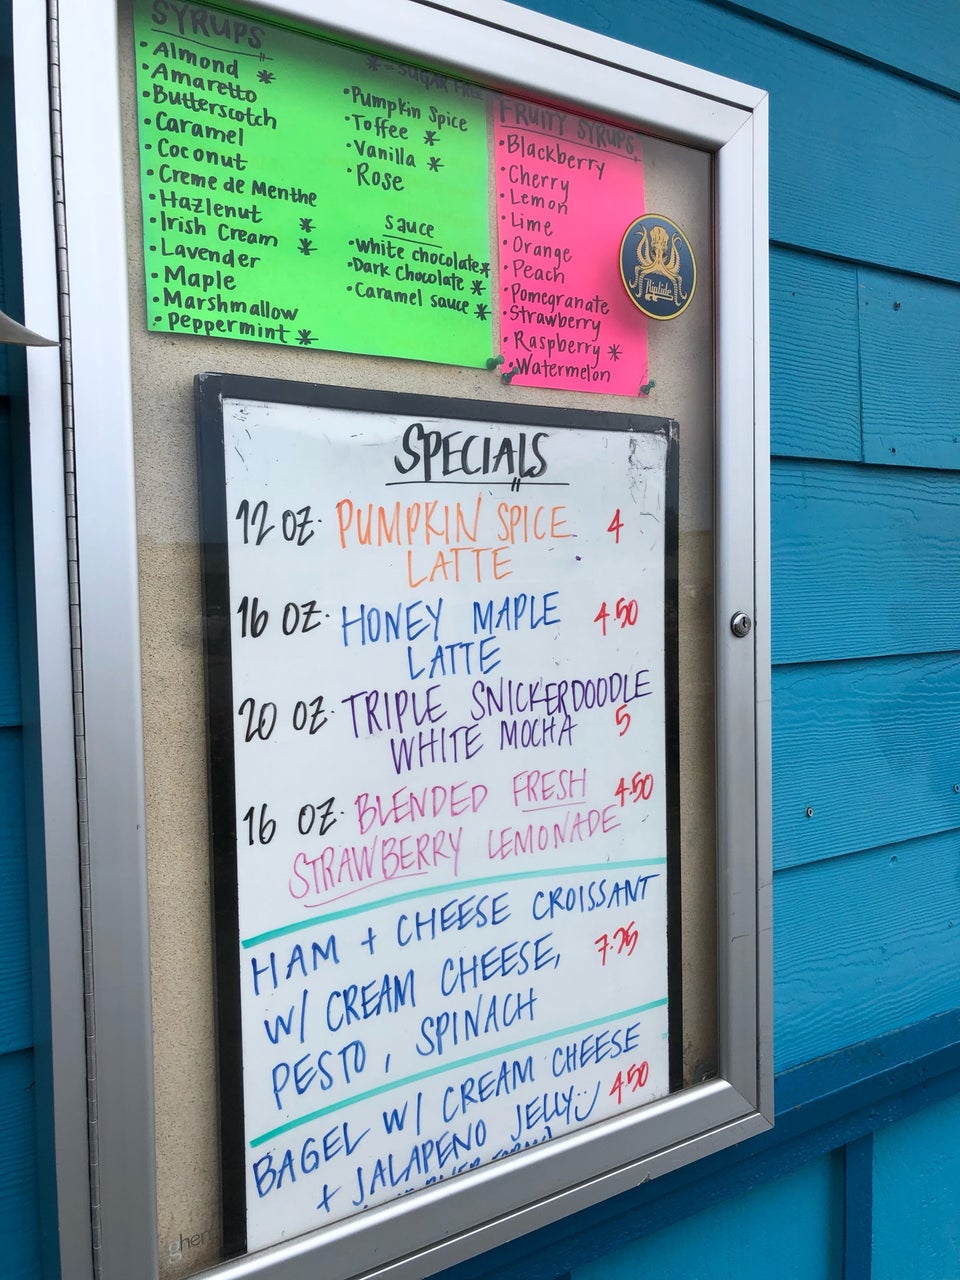 SYRUPS
* = SUGAR FREE
• Almond *
• Amaretto
• Butterscotch
• Caramel
• Coconut
• Creme de Menthe
• Hazlenut *
• Irish Cream *
• Lavender
• Maple
• Marshmallow
• Peppermint *
• Pumpkin Spice
• Toffee *
• Vanilla *
• Rose
Sauce
• White chocolate *
• Dark Chocolate *
• Caramel sauce *
FRUITY SYRUPS
• Blackberry
• Cherry
• Lemon
• Lime
• Orange
• Peach
• Pomegranate
• Strawberry
• Raspberry *
• Watermelon
Riptide
SPECIALS
12 OZ. PUMPKIN SPICE 4
LATTE
16 OZ. HONEY MAPLE 4.50
LATTE
20 OZ. TRIPLE SNICKERDOODLE
WHITE MOCHA 5
16 OZ. BLENDED FRESH 4.50
STRAWBERRY LEMONADE
HAM + CHEESE CROISSANT
W/ CREAM CHEESE, 7.25
PESTO, SPINACH
BAGEL W/ CREAM CHEESE
+ JALAPENO JELLY 4.50
ghent